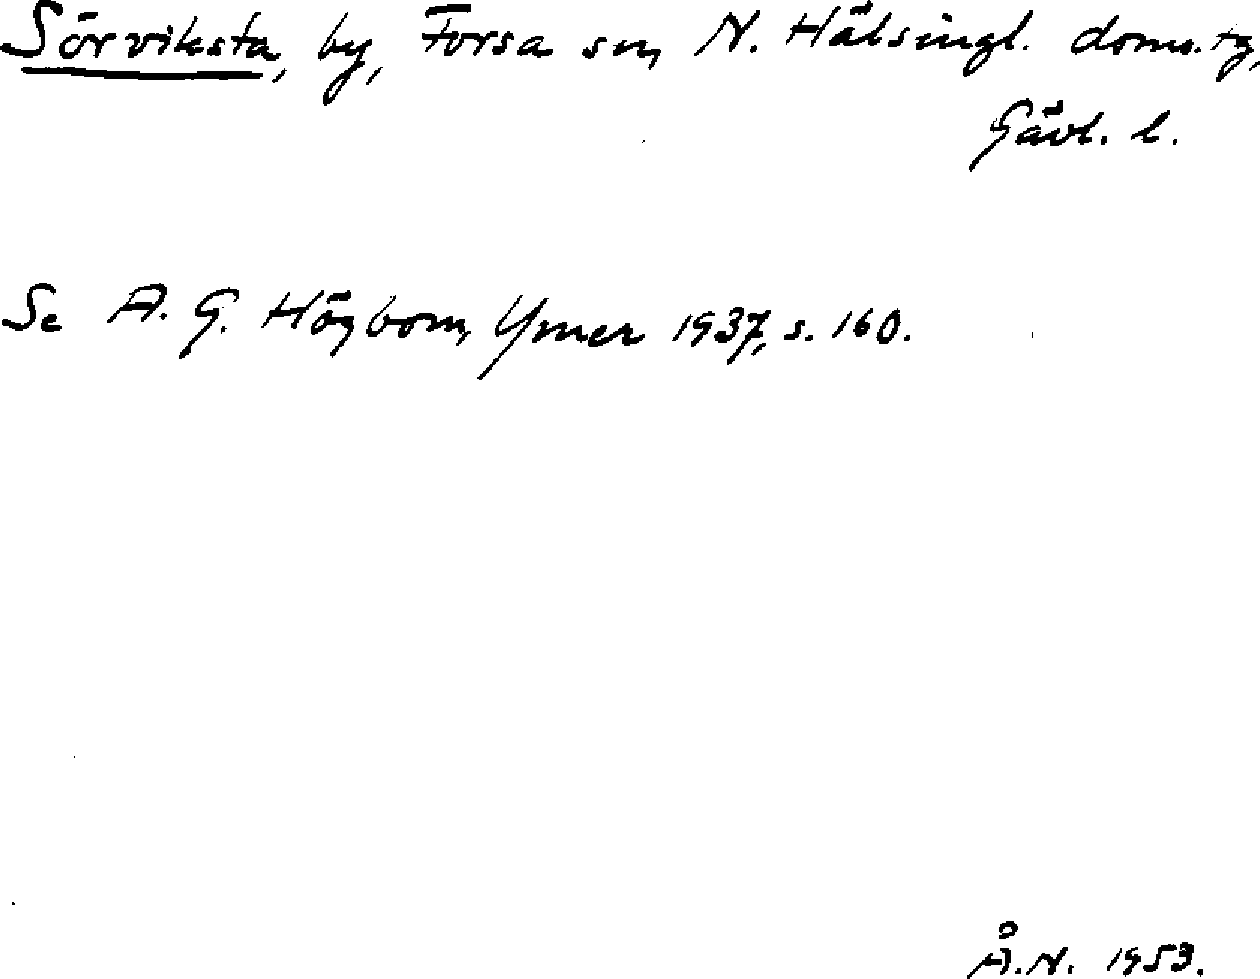 Sörviksta, by, Forsa sn, N. Hälsingl. doms. tg,
Gävl. l.
Se A. G. Högbom, Ymer 1937, s. 160.
Å.N. 1953.